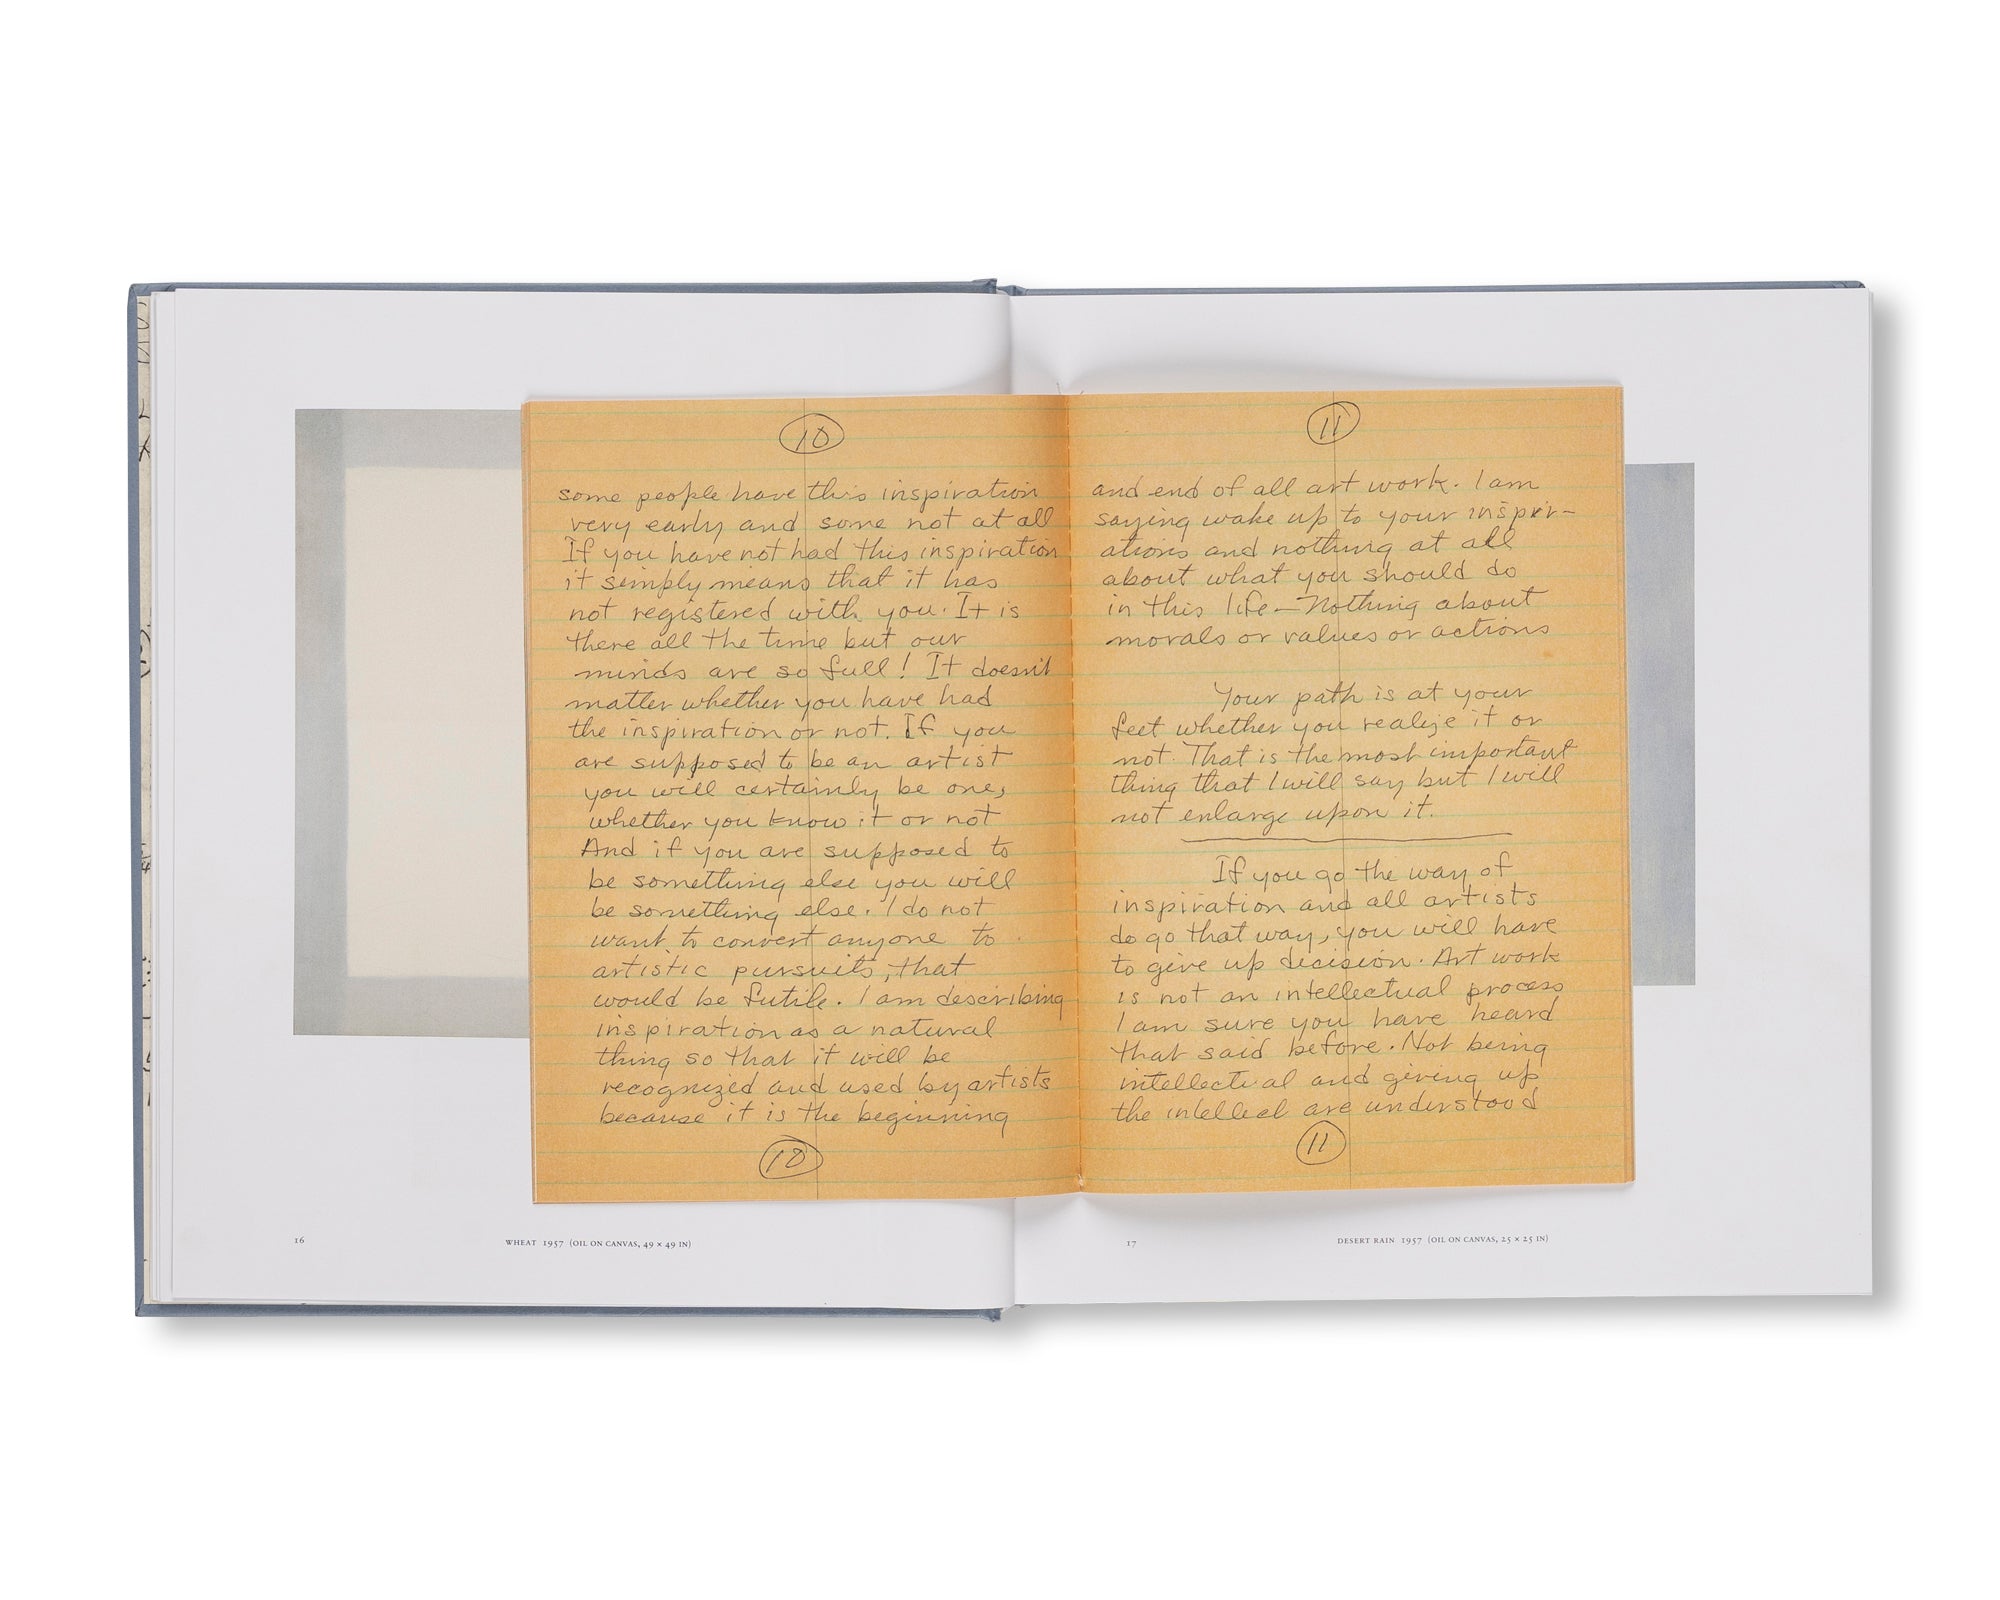 10
some people have this inspiration
very early and some not at all
If you have not had this inspiration
it simply means that it has
not registered with you. It is
there all the time but our
minds are so full! It doesn't
matter whether you have had
the inspiration or not. If you
are supposed to be an artist
you will certainly be one,
whether you know it or not
And if you are supposed to
be something else you will
be something else. I do not
want to convert anyone to
artistic pursuits, that
would be futile. I am describing
inspiration as a natural
thing so that it will be
recognized and used by artists
because it is the beginning
10
11
and end of all art work. I am
saying wake up to your inspir-
ations and nothing at all
about what you should do
in this life – Nothing about
morals or values or actions
Your path is at your
feet whether you realize it or
not. That is the most important
thing that I will say but I will
not enlarge upon it.
If you go the way of
inspiration and all artists
do go that way, you will have
to give up decision. Art work
is not an intellectual process
I am sure you have heard
that said before. Not being
intellectual and giving up
the intellect are understood
11
16
WHEAT 1957 (OIL ON CANVAS, 49 × 49 IN)
17
DESERT RAIN 1957 (OIL ON CANVAS, 25 × 25 IN)